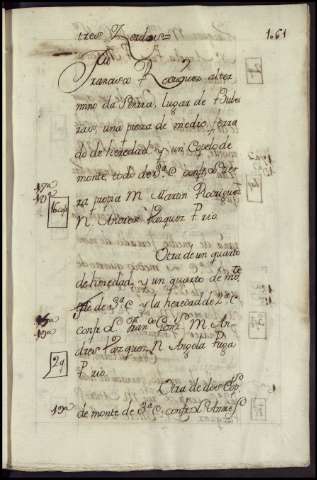 tres Zerdois
1.61
Francisco Rodriguez al ter
mino da Serra, lugar de
una pieza de medio ferra
do de heredad y un Copelo de
monte todo de 3ª C confr L ter
ra propia M Martin Rodriguez
N. Andres Vazquez P rio
Otra de un quarto
de heredad y un quarto de mo
de 3ª C y la heredad 2ª C
confr L Juan Gonz M An
dres Vazquez N Angela Puga
P rio
Otra de dos Cop
de monte de 3ª C confr L Andres